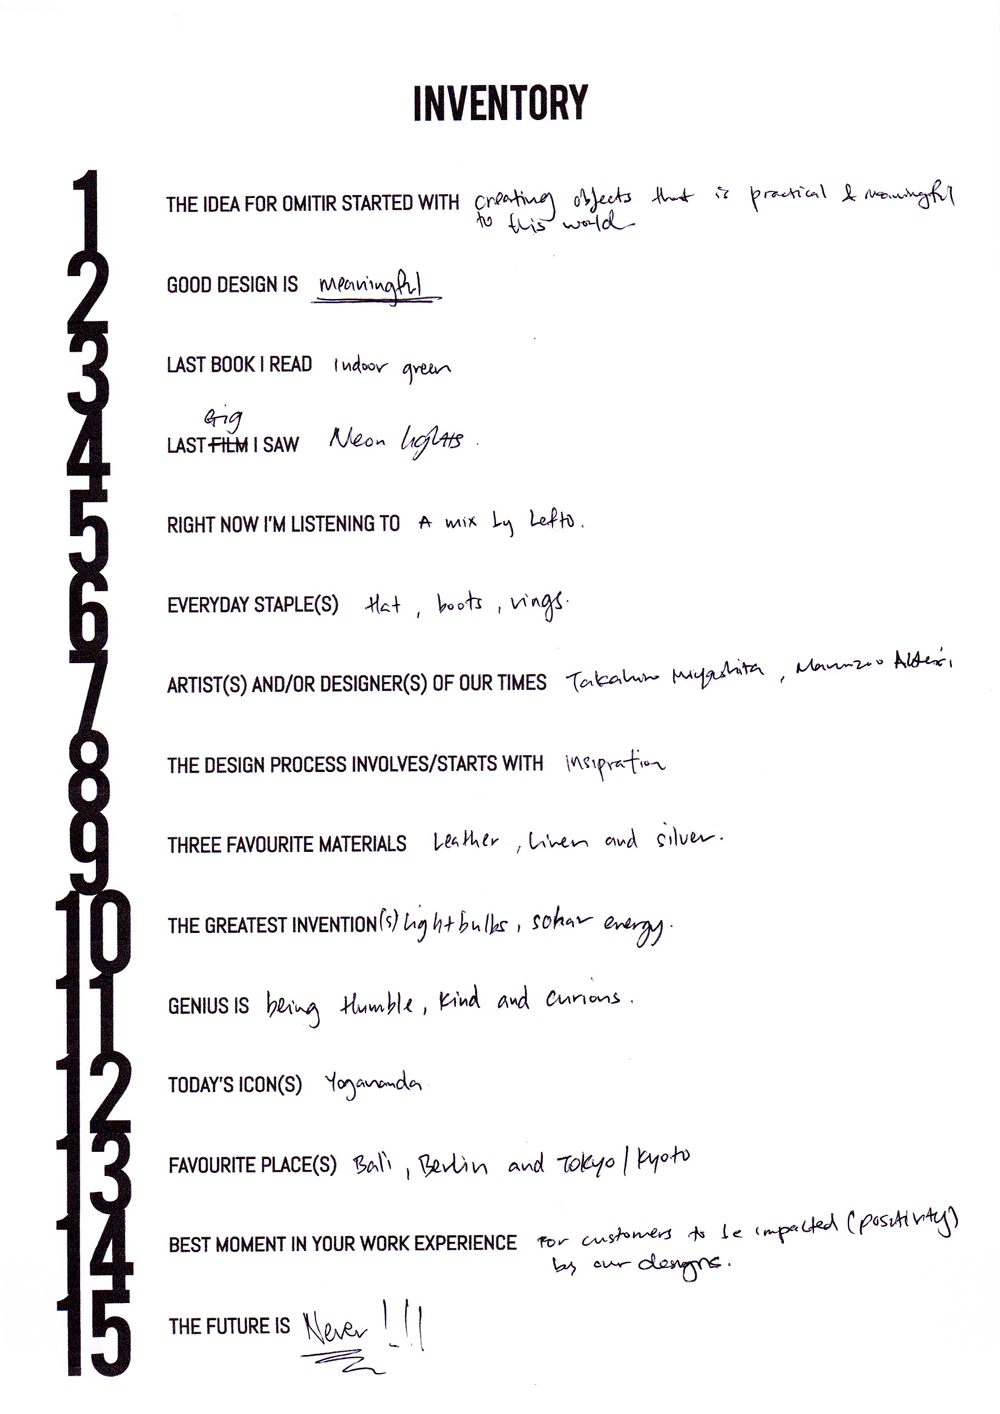 INVENTORY
1 THE IDEA FOR OMITIR STARTED WITH creating objects that is practical & meaningful
to this world
2 GOOD DESIGN IS meaningful
3 LAST BOOK I READ Indoor green
Gig
4 LAST FILM I SAW Neon lights.
5 RIGHT NOW I'M LISTENING TO A mix by Lefto.
6 EVERYDAY STAPLE(S) Hat, boots, rings.
7 ARTIST(S) AND/OR DESIGNER(S) OF OUR TIMES Takahiro Miyashita, Maurizio
8 THE DESIGN PROCESS INVOLVES/STARTS WITH insipration
9 THREE FAVOURITE MATERIALS Leather, linen and silver.
10 THE GREATEST INVENTION(s) Lightbulbs, solar energy.
11 GENIUS IS being Humble, Kind and curious.
12 TODAY'S ICON(S) Yogananda
13 FAVOURITE PLACE(S) Bali, Berlin and Tokyo/Kyoto
14 BEST MOMENT IN YOUR WORK EXPERIENCE For customers to be impacted (positivity)
by our designs.
15 THE FUTURE IS Never!!!